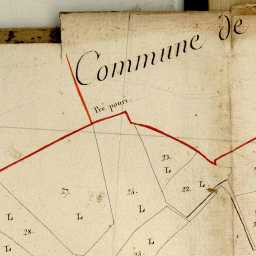 Commune de
Pré pouri
23.
T.
27.
24.
22.
T.
T.
T.
T.
28.
T.
T.